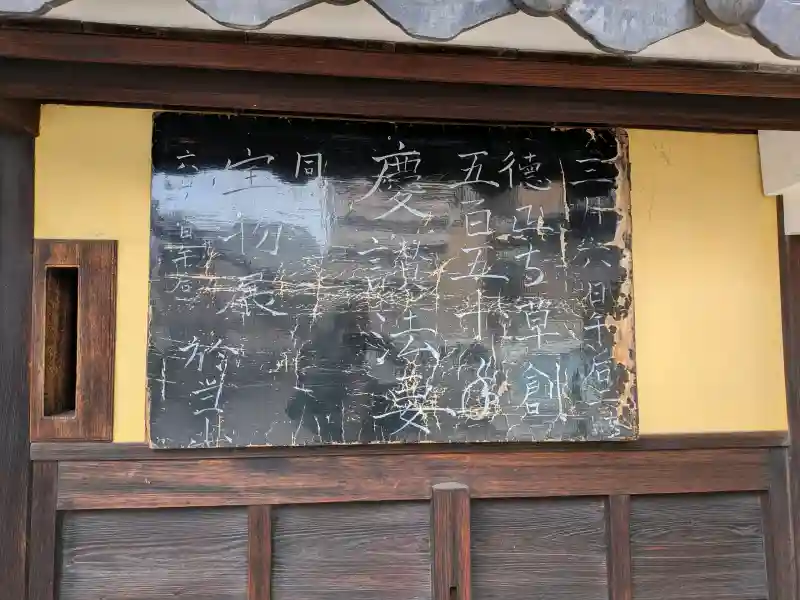 三月六日午后一
徳正寺草創
五百五十年
慶讃法要
同
宝物展 於当
六日午后